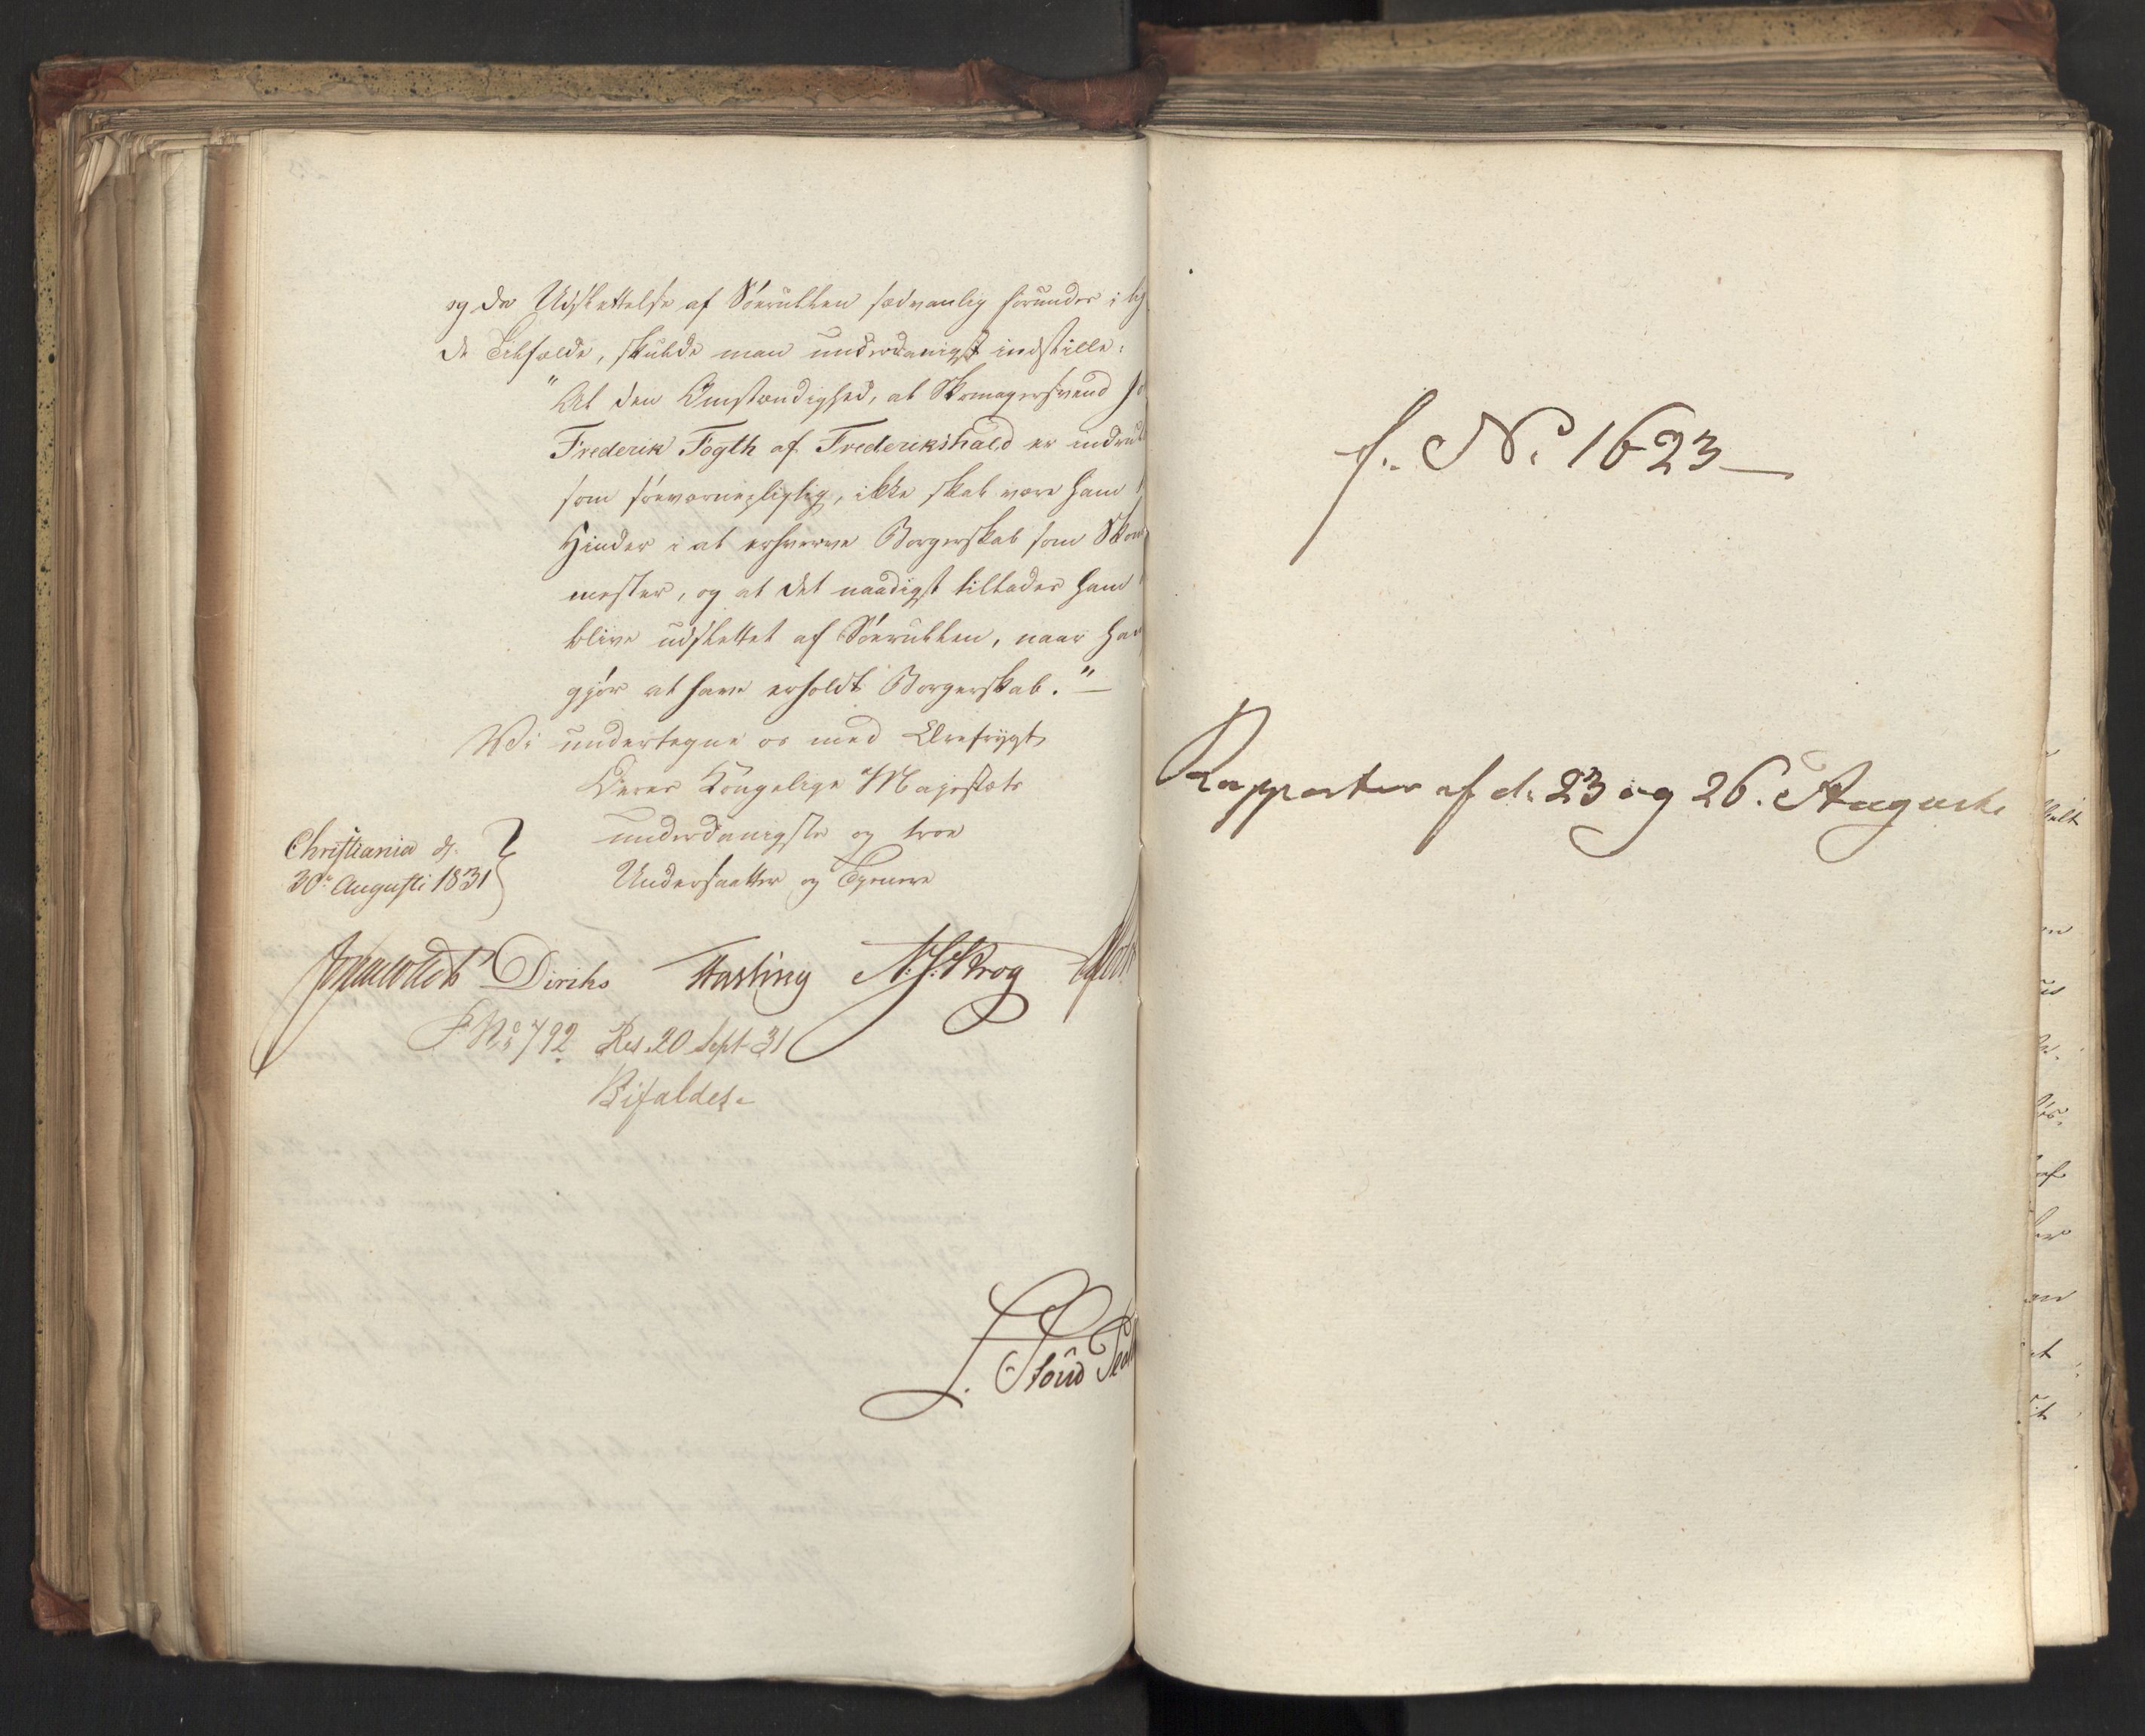 og da Udslettelse af Søerullen sædvanlig forundes i
de Tilfælde, skulde man underdanigst indstille:
"At den Omstændighed, at Skomagersvend
Frederik Fogth af Frederikshald er indrul
som søeværnepligtig, ikke skal være ham
Hinder i at erhverve Borgerskab som Skom
mester, og at det naadigst tillades ham
blive udslettet af Søerullen, naar han
gjør at have erholdt Borgerskab."—
Vi undertegne os med Ærefrygt
Deres Kongelige Majestæts
underdanigste og troe
Undersaatter og Tjenere
Christiania d.
30te Augusti 1831
Diriks Fasting N.J. Krog
F. No 792 Res. 20 Sept. 31
Bifaldes.
f. No. 1623
Rapporter af d. 23 og 26. August.